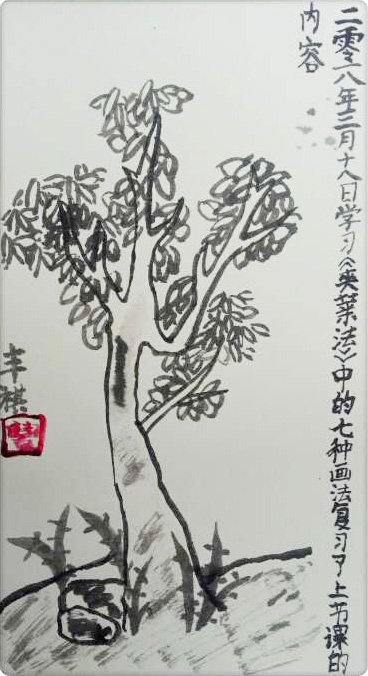 二零一八年三月十八日学习《夹葉法》中的七种画法复习了上节课的
内容
丰祺